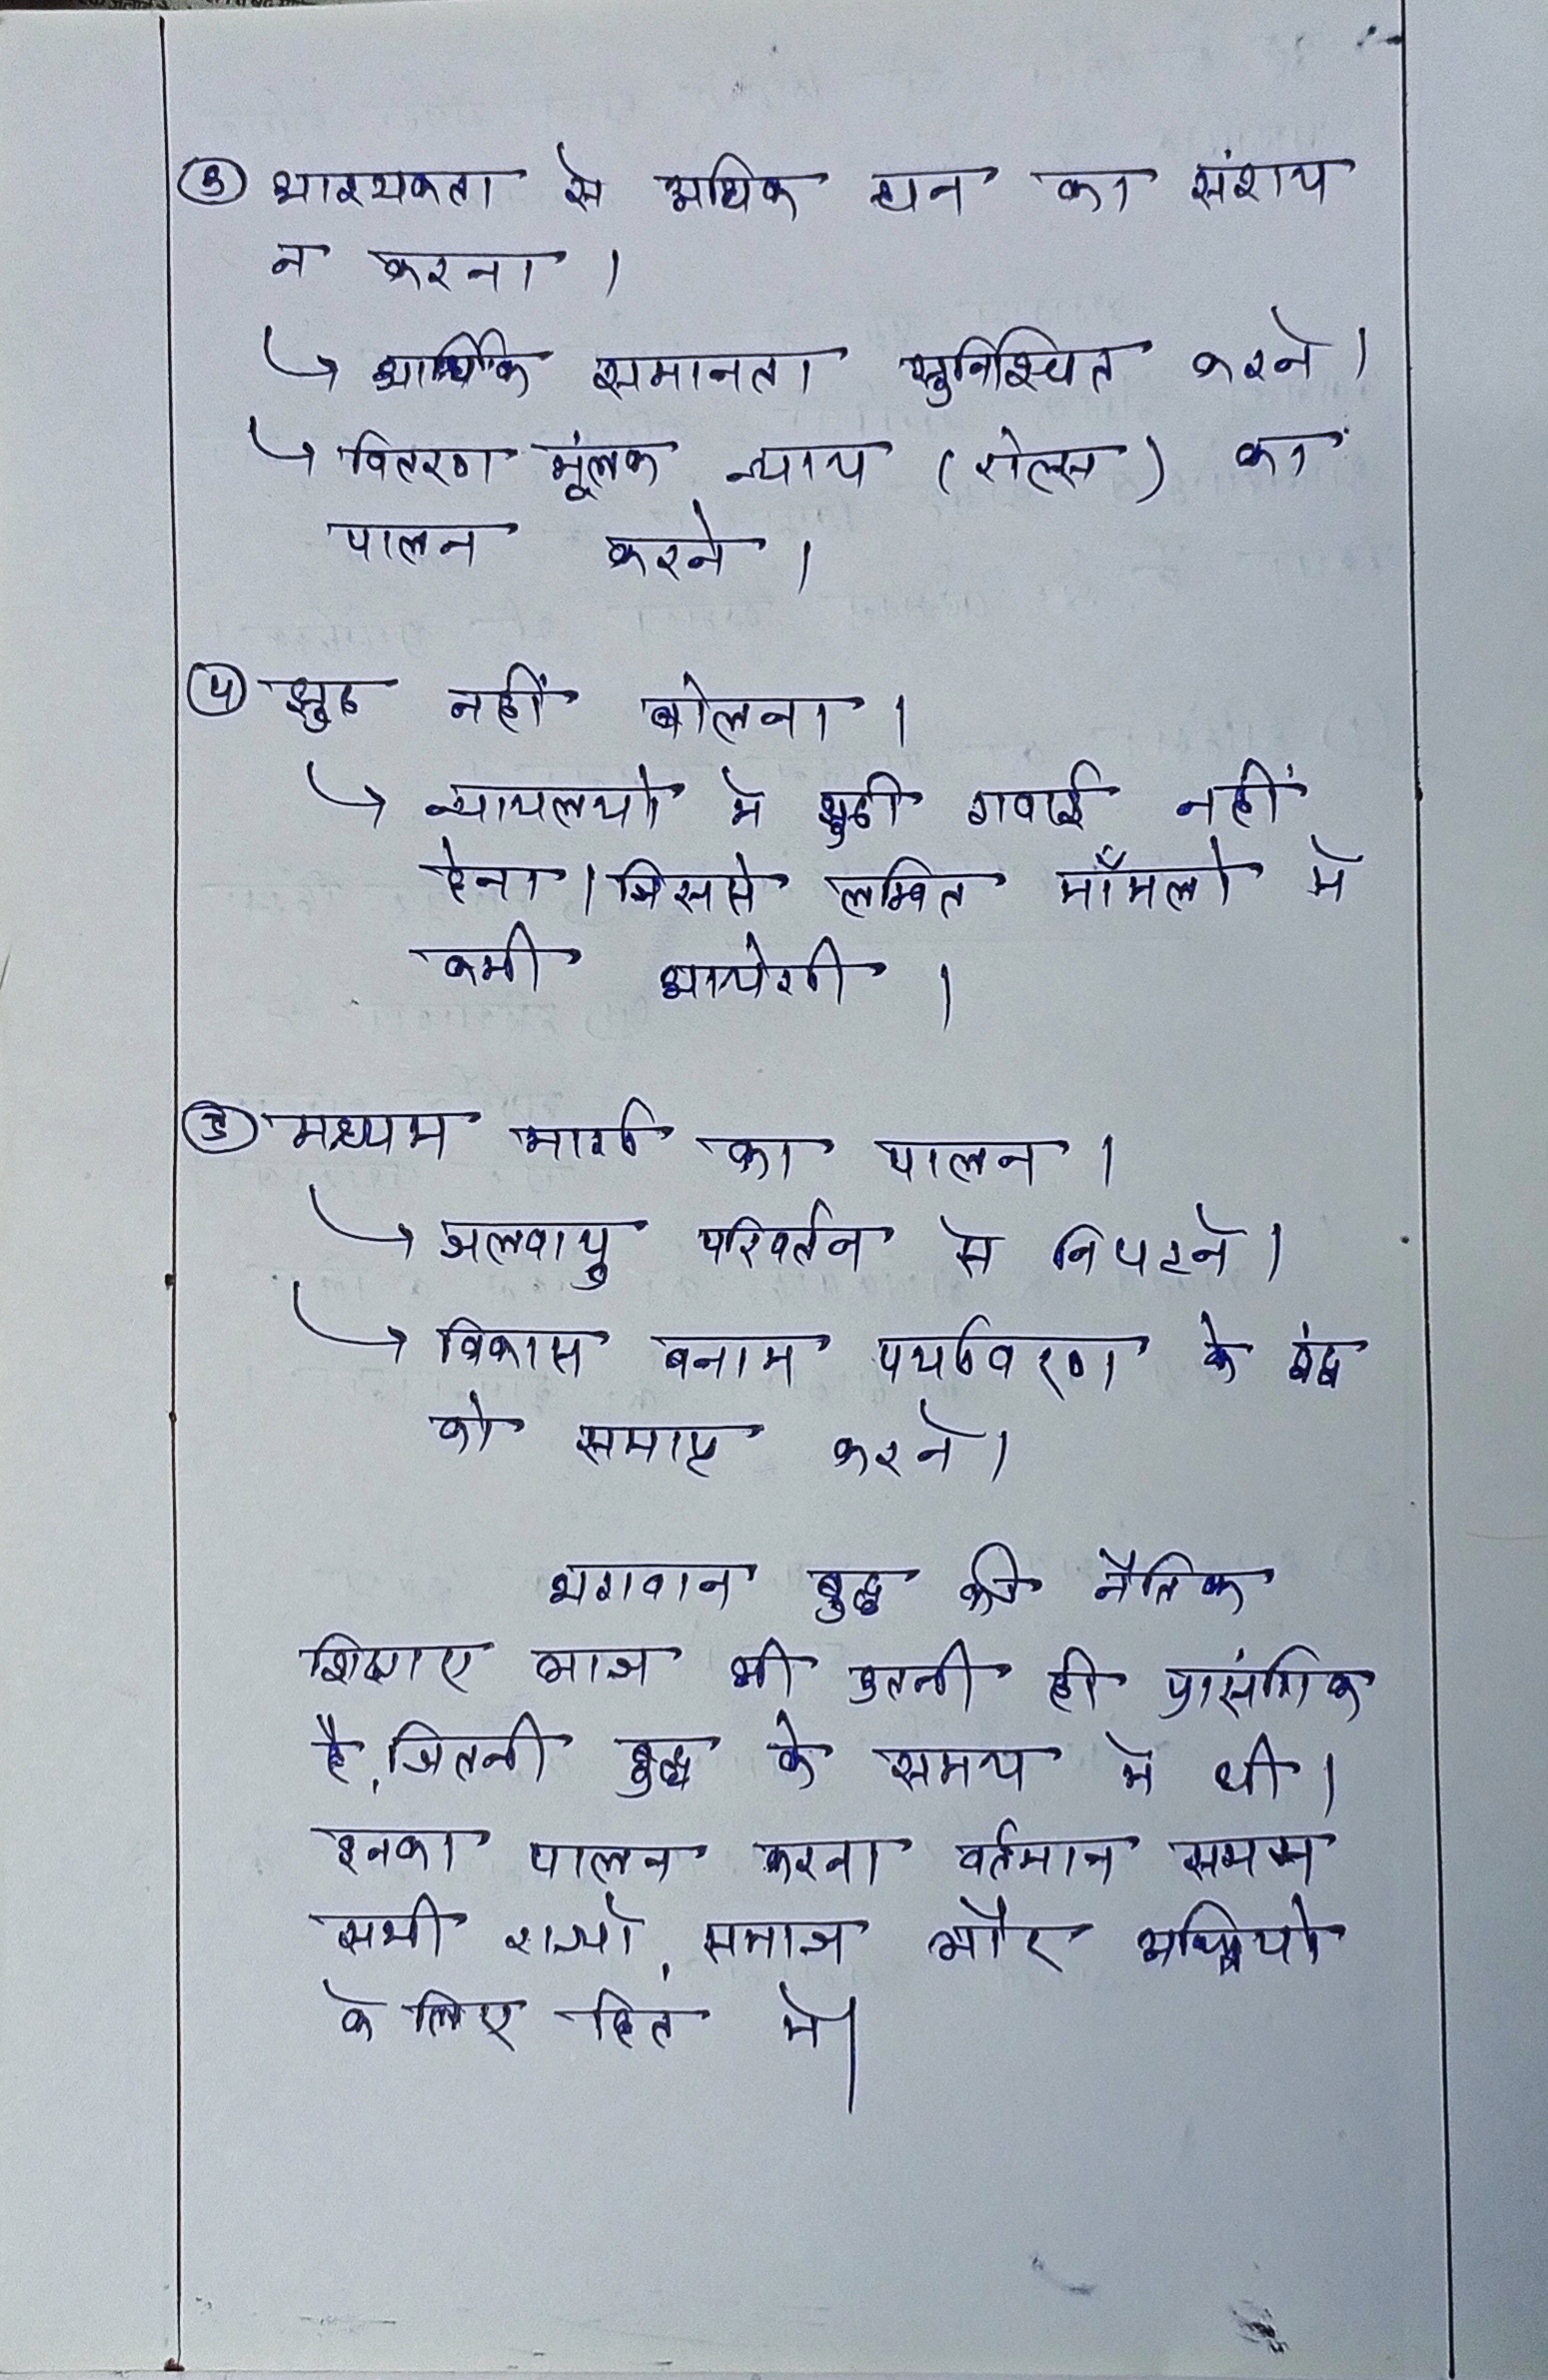 ③ आवश्यकता से अधिक धन का संशय
न करना।
↳ आर्थिक समानता सुनिश्चित करने।
↳ वितरण मूंलक न्याय (रोल्स) का
पालन करने।
④ झुठ नहीं बोलना।
↳ न्यायलयो मे झुठी गवाई नहीं
देना। जिससे लम्बित माँमलो मे
कमी आयेगी।
⑤ मध्यम मार्ग का पालन।
↳ जलवायु परिवर्तन से निपटने।
↳ विकास बनाम पर्यावरण के द्वंद्व
को समाप्त करने।
भगवान बुद्ध की नैतिक
शिक्षाए आज भी उतनी ही प्रासंगिक
है, जितनी बुद्ध के समय मे थी।
इनका पालन करना वर्तमान समय
सभी राज्यो, समाज और
के लिए हित मे।